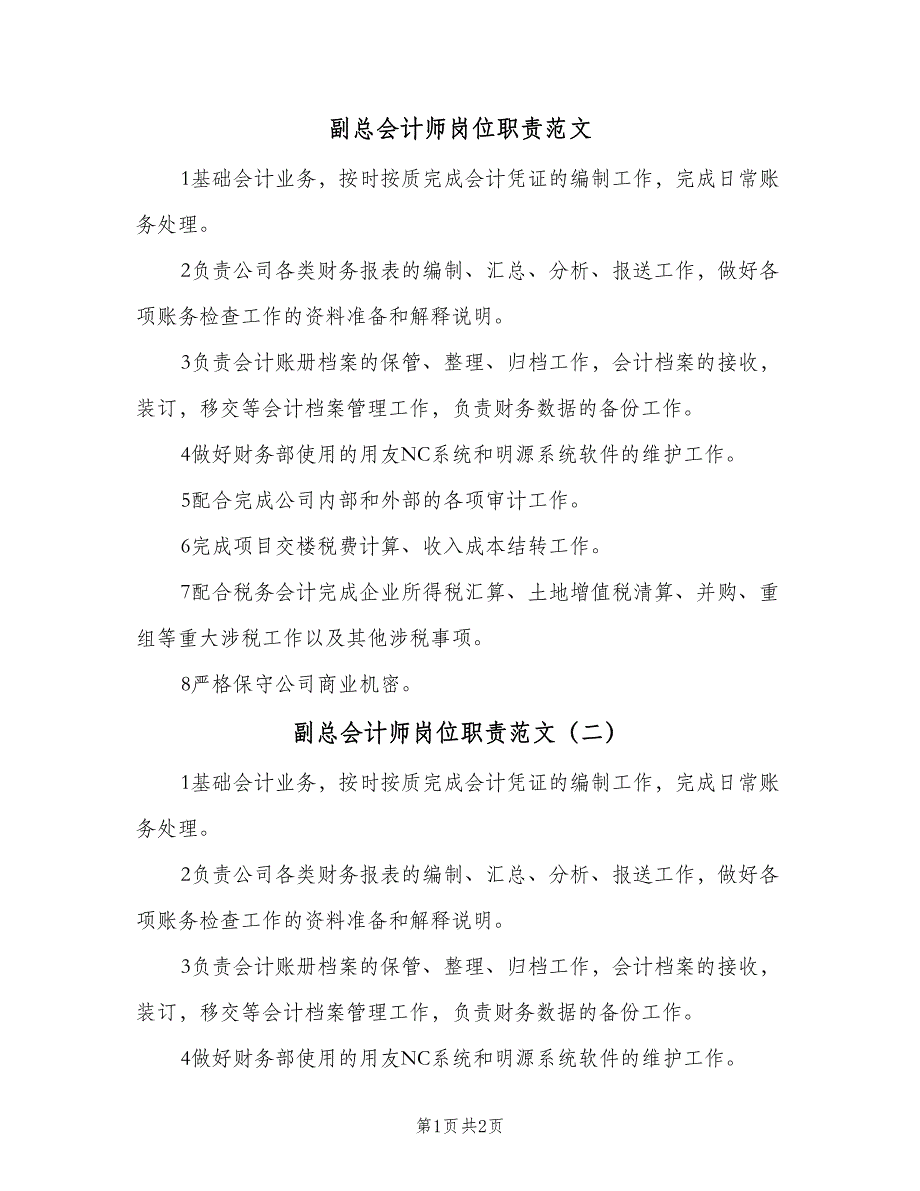 副总会计师岗位职责范文
1基础会计业务，按时按质完成会计凭证的编制工作，完成日常账
务处理。
2负责公司各类财务报表的编制、汇总、分析、报送工作，做好各
项账务检查工作的资料准备和解释说明。
3负责会计账册档案的保管、整理、归档工作，会计档案的接收，
装订，移交等会计档案管理工作，负责财务数据的备份工作。
4做好财务部使用的用友NC系统和明源系统软件的维护工作。
5配合完成公司内部和外部的各项审计工作。
6完成项目交楼税费计算、收入成本结转工作。
7配合税务会计完成企业所得税汇算、土地增值税清算、并购、重
组等重大涉税工作以及其他涉税事项。
8严格保守公司商业机密。
副总会计师岗位职责范文（二）
1基础会计业务，按时按质完成会计凭证的编制工作，完成日常账
务处理。
2负责公司各类财务报表的编制、汇总、分析、报送工作，做好各
项账务检查工作的资料准备和解释说明。
3负责会计账册档案的保管、整理、归档工作，会计档案的接收，
装订，移交等会计档案管理工作，负责财务数据的备份工作。
4做好财务部使用的用友NC系统和明源系统软件的维护工作。
第1页 共2页